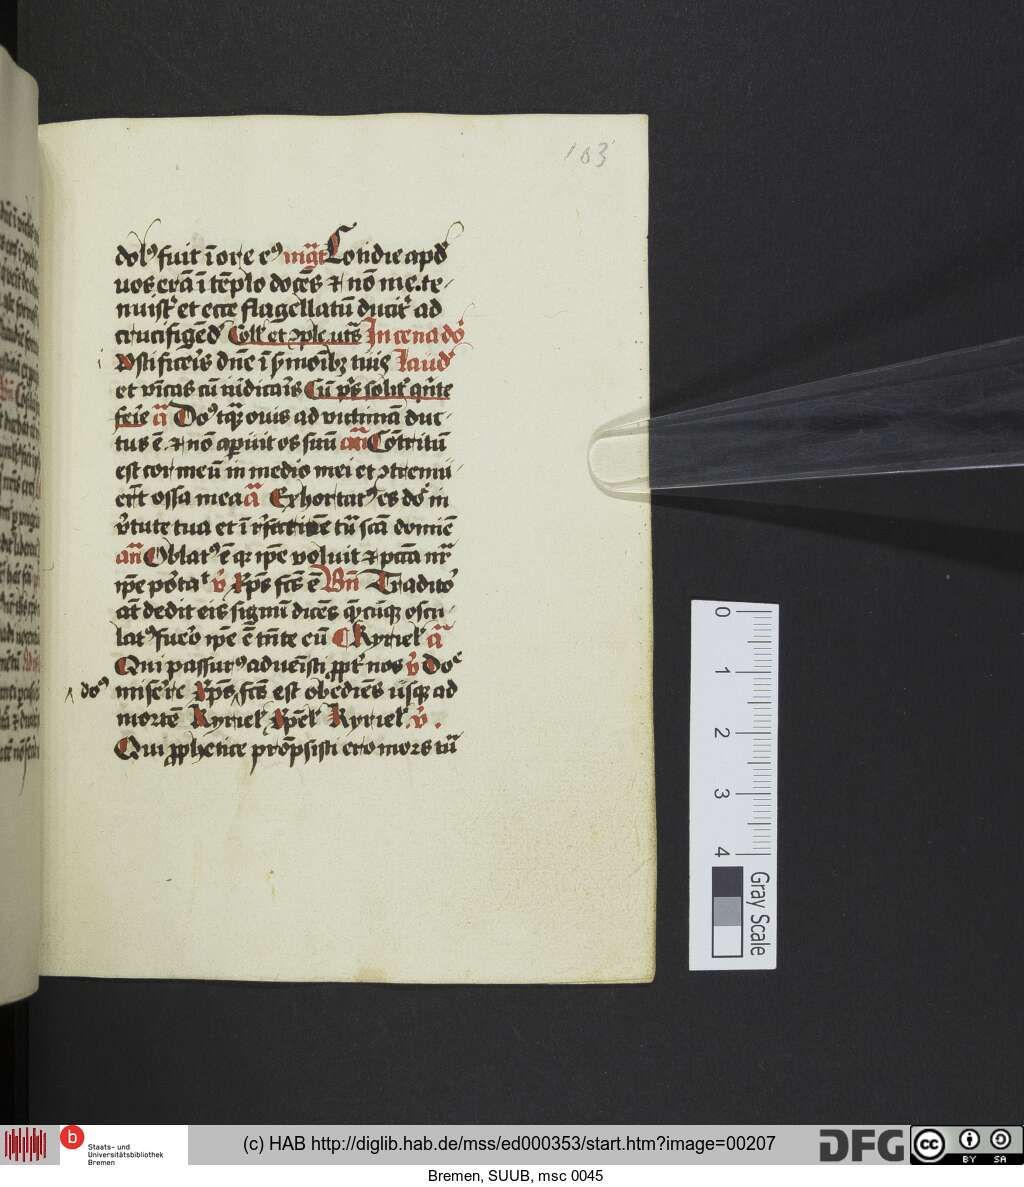 103
dolꝰ fuit ī ore eꝰ mḡt Cotidie apd
uos erā ī tēplo docēs ⁊ nō me te-
nuistꝭ et ecce flagellatū ducitꝭ ad
crucifigēd Coll et ꝯple ut sͣ In cena do
Iustificeris dne ī ẜmoībꝫ tuis laud
et vīcas cū iudicaris Cū ps solitꝭ an̄te
feīe a᷒ Doꝰ tqꝫ ouis ad victimā duc-
tus ē ⁊ nō aperuit os suū an̄ Cōtritū
est cor meū in medio mei et ꝯtremu-
er̄t ossa mea a᷒ Exhortatꝰ es do in
v̓tute tua et ī refectione tua scā domīe
an̄ Oblatꝰ ē qꝛ ip̄e voluit ⁊ pctā nr̄a
ip̄e portaṫ v̓ xp̄s fcs ē Bn̄ Traditor
at̄ dedit eis signū dicēs quēcūqꝫ oscu-
latꝰ fuero ip̄e ē tn̄te eū Kyriel a᷒
Qui passurꝰ aduenisti ꝓptꝭ nos v̓ Do
do miserēre xp̄s fcs est obediēs usqꝫ ad
mortē Kyriel xp̄el Kyriel v̓.
Qui ꝓphetice promp̄sisti ero mors tua
0
1
2
3
4
Gray Scale
b
Staats- und
Universitätsbibliothek
Bremen
(c) HAB http://diglib.hab.de/mss/ed000353/start.htm?image=00207
DFG
cc BY SA
Bremen, SUUB, msc 0045